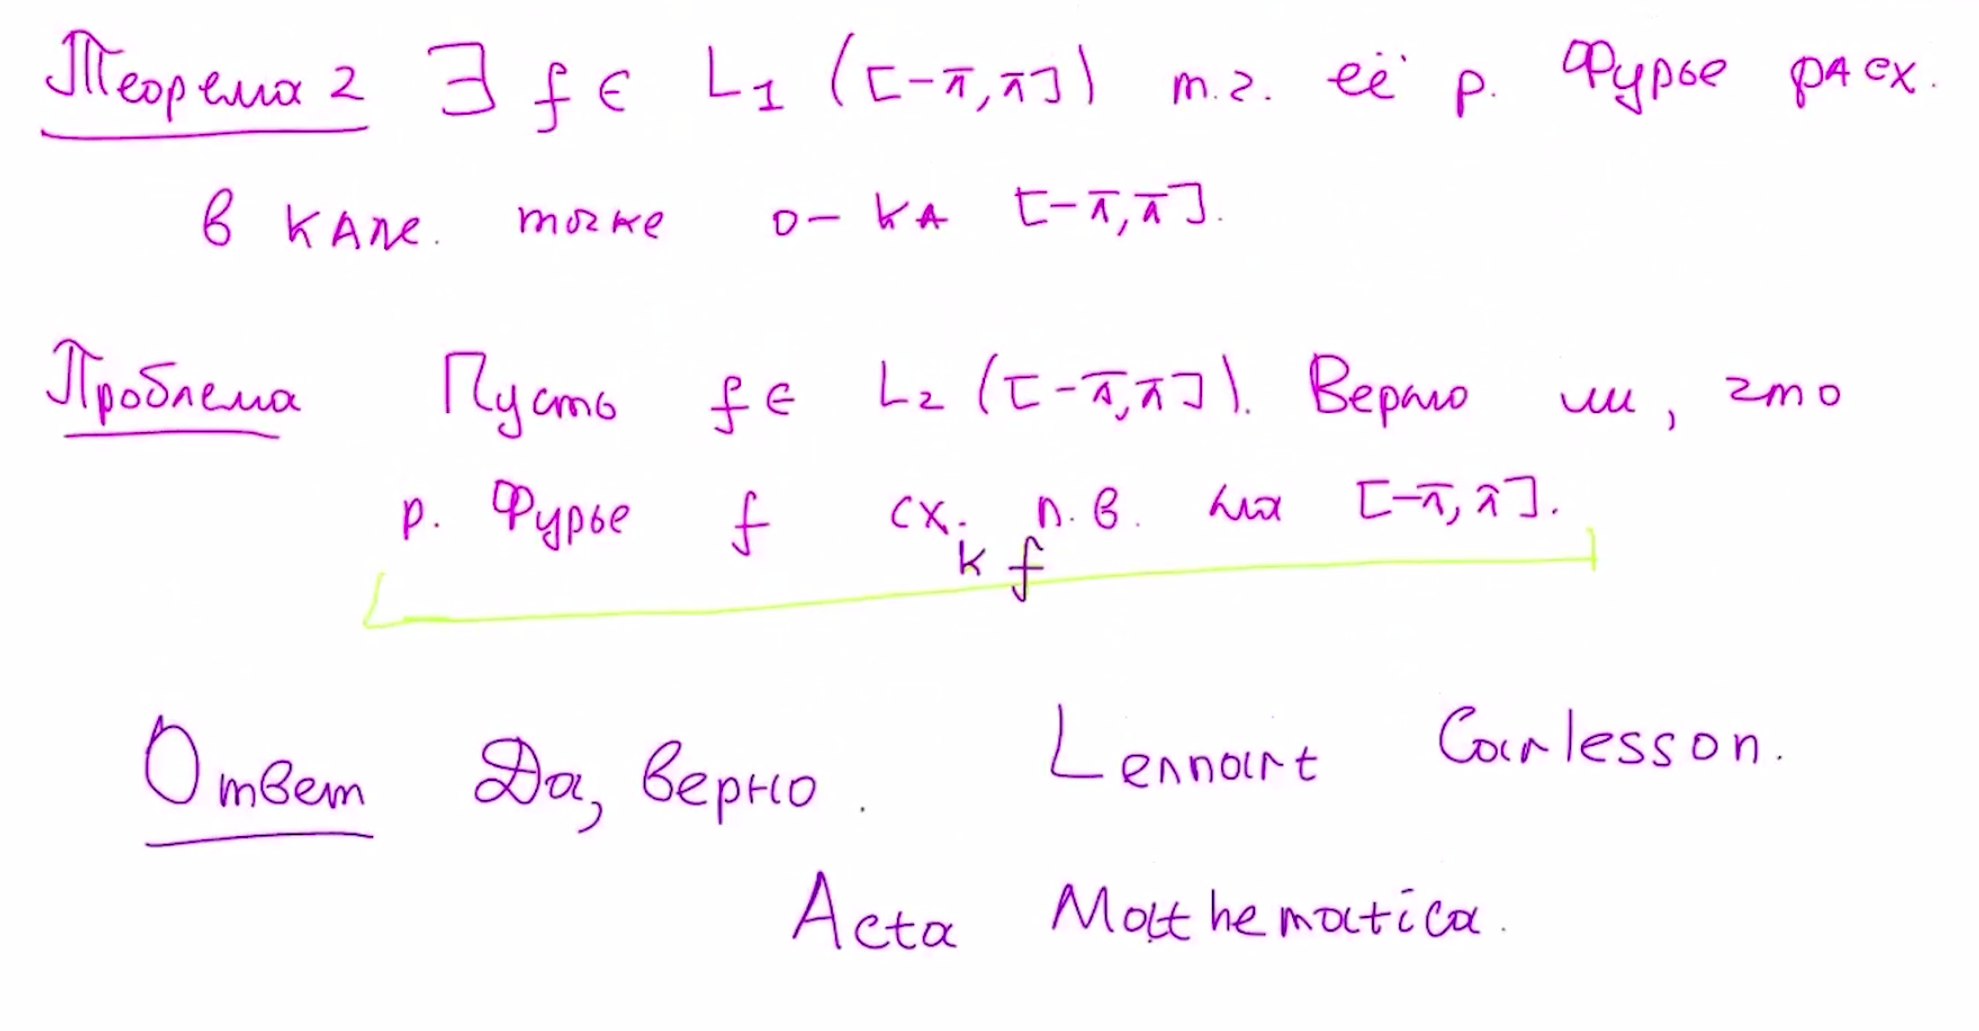 Теорема 2 ∃ f ∈ L₁ ([-π,π]) т.ч. её р. Фурье расх.
в кажд. точке о-ка [-π,π].
Проблема Пусть f ∈ L₂ ([-π,π]). Верно ли, что
р. Фурье f сх. п.в. на [-π,π].
к f
Ответ Да, верно. Lennart Carlesson.
Acta Mathematica.